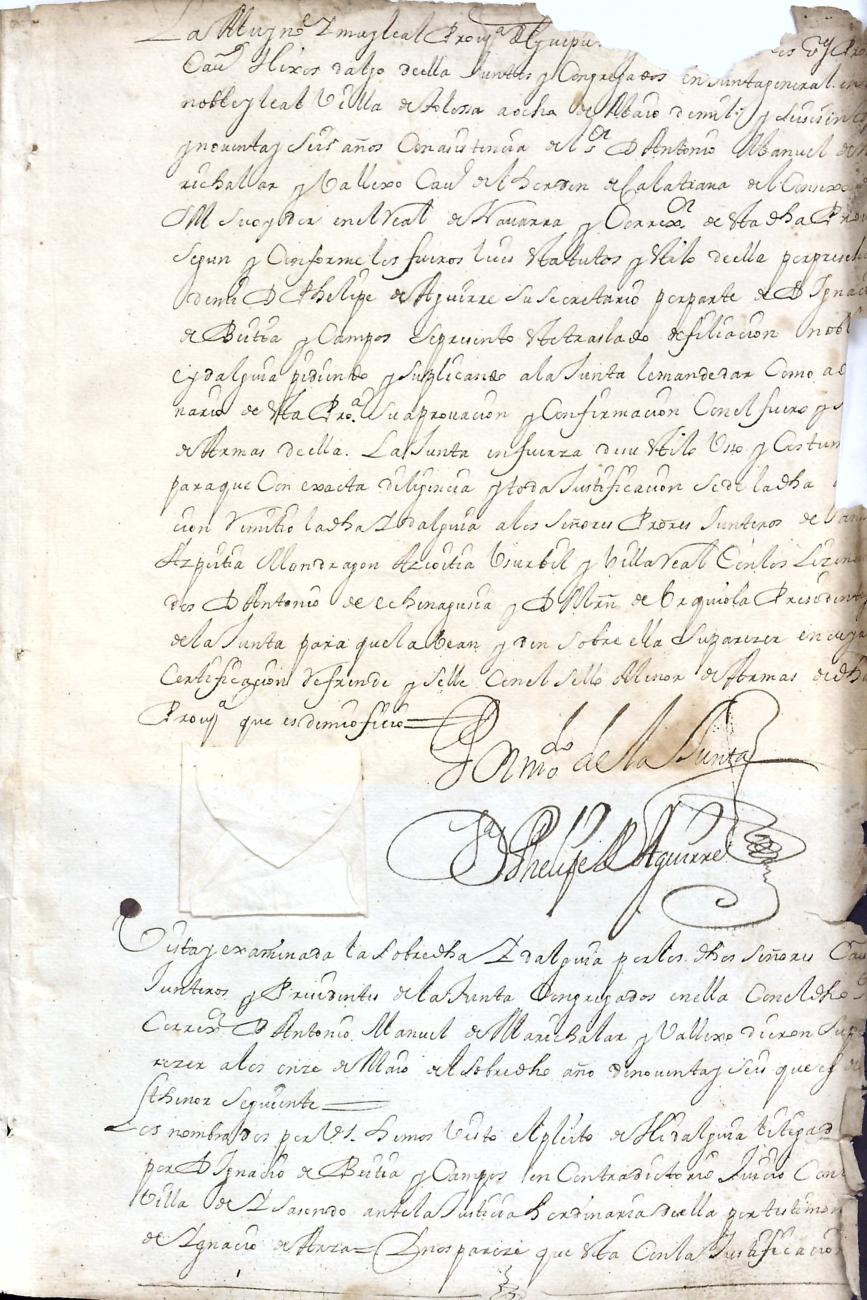 La Muy no.e Z muy leal Prouj.a de Guipu
Cau.s Hixos dalgo deella Juntos y Congregados en Junta general en
noble y leal Villa de a ocho de Maio de mill y seiscientos
y nouenta y seis años Con asistencia del s.or D Antonio Manuel de
richalar y Vallexo Cau.o del horden de Calatraua del Consexo
M su oydor en el Real de Nauarra y Correx.or de esta dha Pro
segun y Conforme los fueros leies estatutos y estilo deella por presencia
de mi D Phelipe de Aguirre su secretario por parte de D Ignacio
de Beitia y Campos se presento este traslado de filiacion nobl
e ydalguia pidiendo y suplicando a la Junta le mande dar Como a
nario de esta Pro.a su aprouacion y Confirmacion Con el fuero y
de Armas de ella. La Junta en fuerza de su estilo Uso y Costum
para que Con exacta diligencia y toda Justificacion se de la dha
cion Remitio la dha Zdalguia a los señores Prores Junteros de
Azpeitia Mondragon Azcoitia Usurbil y Villa Real Con los Lizencia
dos D Antonio de echenagusia y D Mrn de Urquiola Presidentes
de la Junta para que la bean y den sobre ella su parezer en cuya
Certificazion Refrende y selle Con el sello Menor de Armas de dha
Prouj.a que es de mi oficio
Por m.do de la Junta
D Phelipe de Aguirre
Vista y examinada la sobredha Zdalguia por los dhos señores Cau
Junteros y Presidentes de la Junta Congregados en ella Con el dho
Correx.or D Antonio Manuel de Marichalar y Vallexo dieron su pa
rezer a los onze de Maio del sobredho año de nouenta y seis que es del
thenor seguiente
Los nombrados por V.S. hemos Visto el pleito de Hidalguia litigad
por D Ignacio de Beitia y Campos en Contradictorio Juicio Con
Villa de Zsasondo ante la Justicia hordinaria de ella por testimon
de Ignacio de Arza Z nos pareze que esta Con la Justificacion